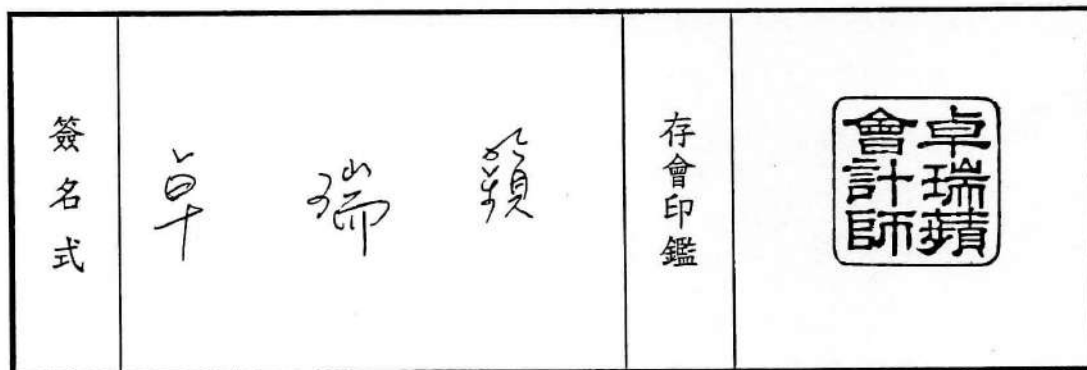 簽名式
卓 瑞 蘋
存會印鑑
卓瑞蘋
會計師